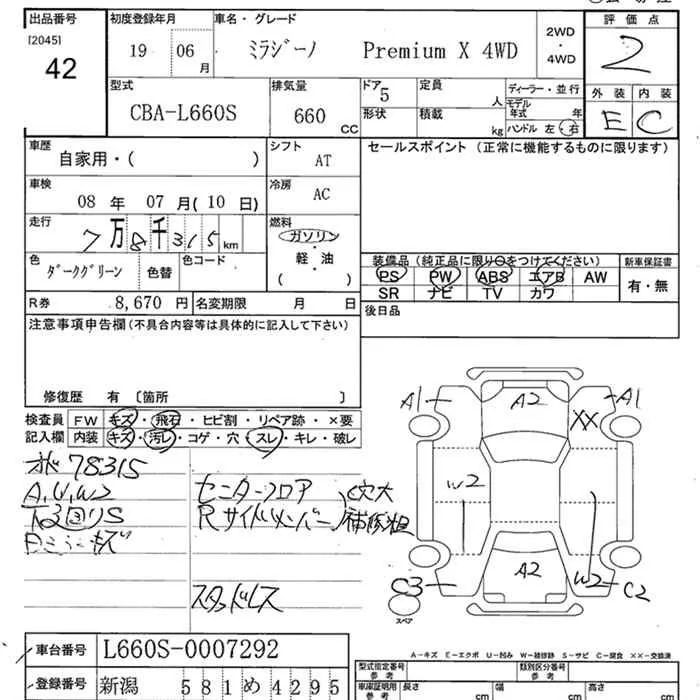 出品番号 初度登録年月 車名・グレード 評価点
[2045] 42 19 06月 ミラジーノ Premium X 4WD 2WD・4WD 2
型式 排気量 ドア 5 定員 人 ディーラー・並行 外装 内装
CBA-L660S 660 CC 形状 積載 kg モデル年式 年 ハンドル 左・右 E C
車歴 シフト セールスポイント (正常に機能するものに限ります)
自家用・( ) AT
車検 冷房
08年 07月(10日) AC
走行 燃料
7万8千315km ガソリン
軽・油
( )
色 色替 色コード 装備品 (純正品に限り○をつけてください) 新車保証書
ダークグリーン PS PW ABS エアB AW 有・無
R券 8,670円 名変期限 月 日 SR ナビ TV カワ
注意事項申告欄 (不具合内容等は具体的に記入して下さい) 後日品
修復歴 有 〔箇所 〕
検査員 FW キズ・飛石・ヒビ割・リペア跡・×要
記入欄 内装 キズ・汚レ・コゲ・穴・スレ・キレ・破レ
A1 A2 XX A1
78315
A,U,W2 センターフロア 穴大
下回りS Rサイドメンバー 補修粗
キズ
スタッドレス
W2
C3 A2 W2 C2
スペア
A-キズ E-エクボ U-凹み W-補修跡 S-サビ C-腐食 XX-交換済
車台番号 L660S-0007292
登録番号 新潟 581め4295
型式指定番号 参考 類別区分番号 参考
車庫証明用 参考 長さ cm 幅 cm 高さ cm